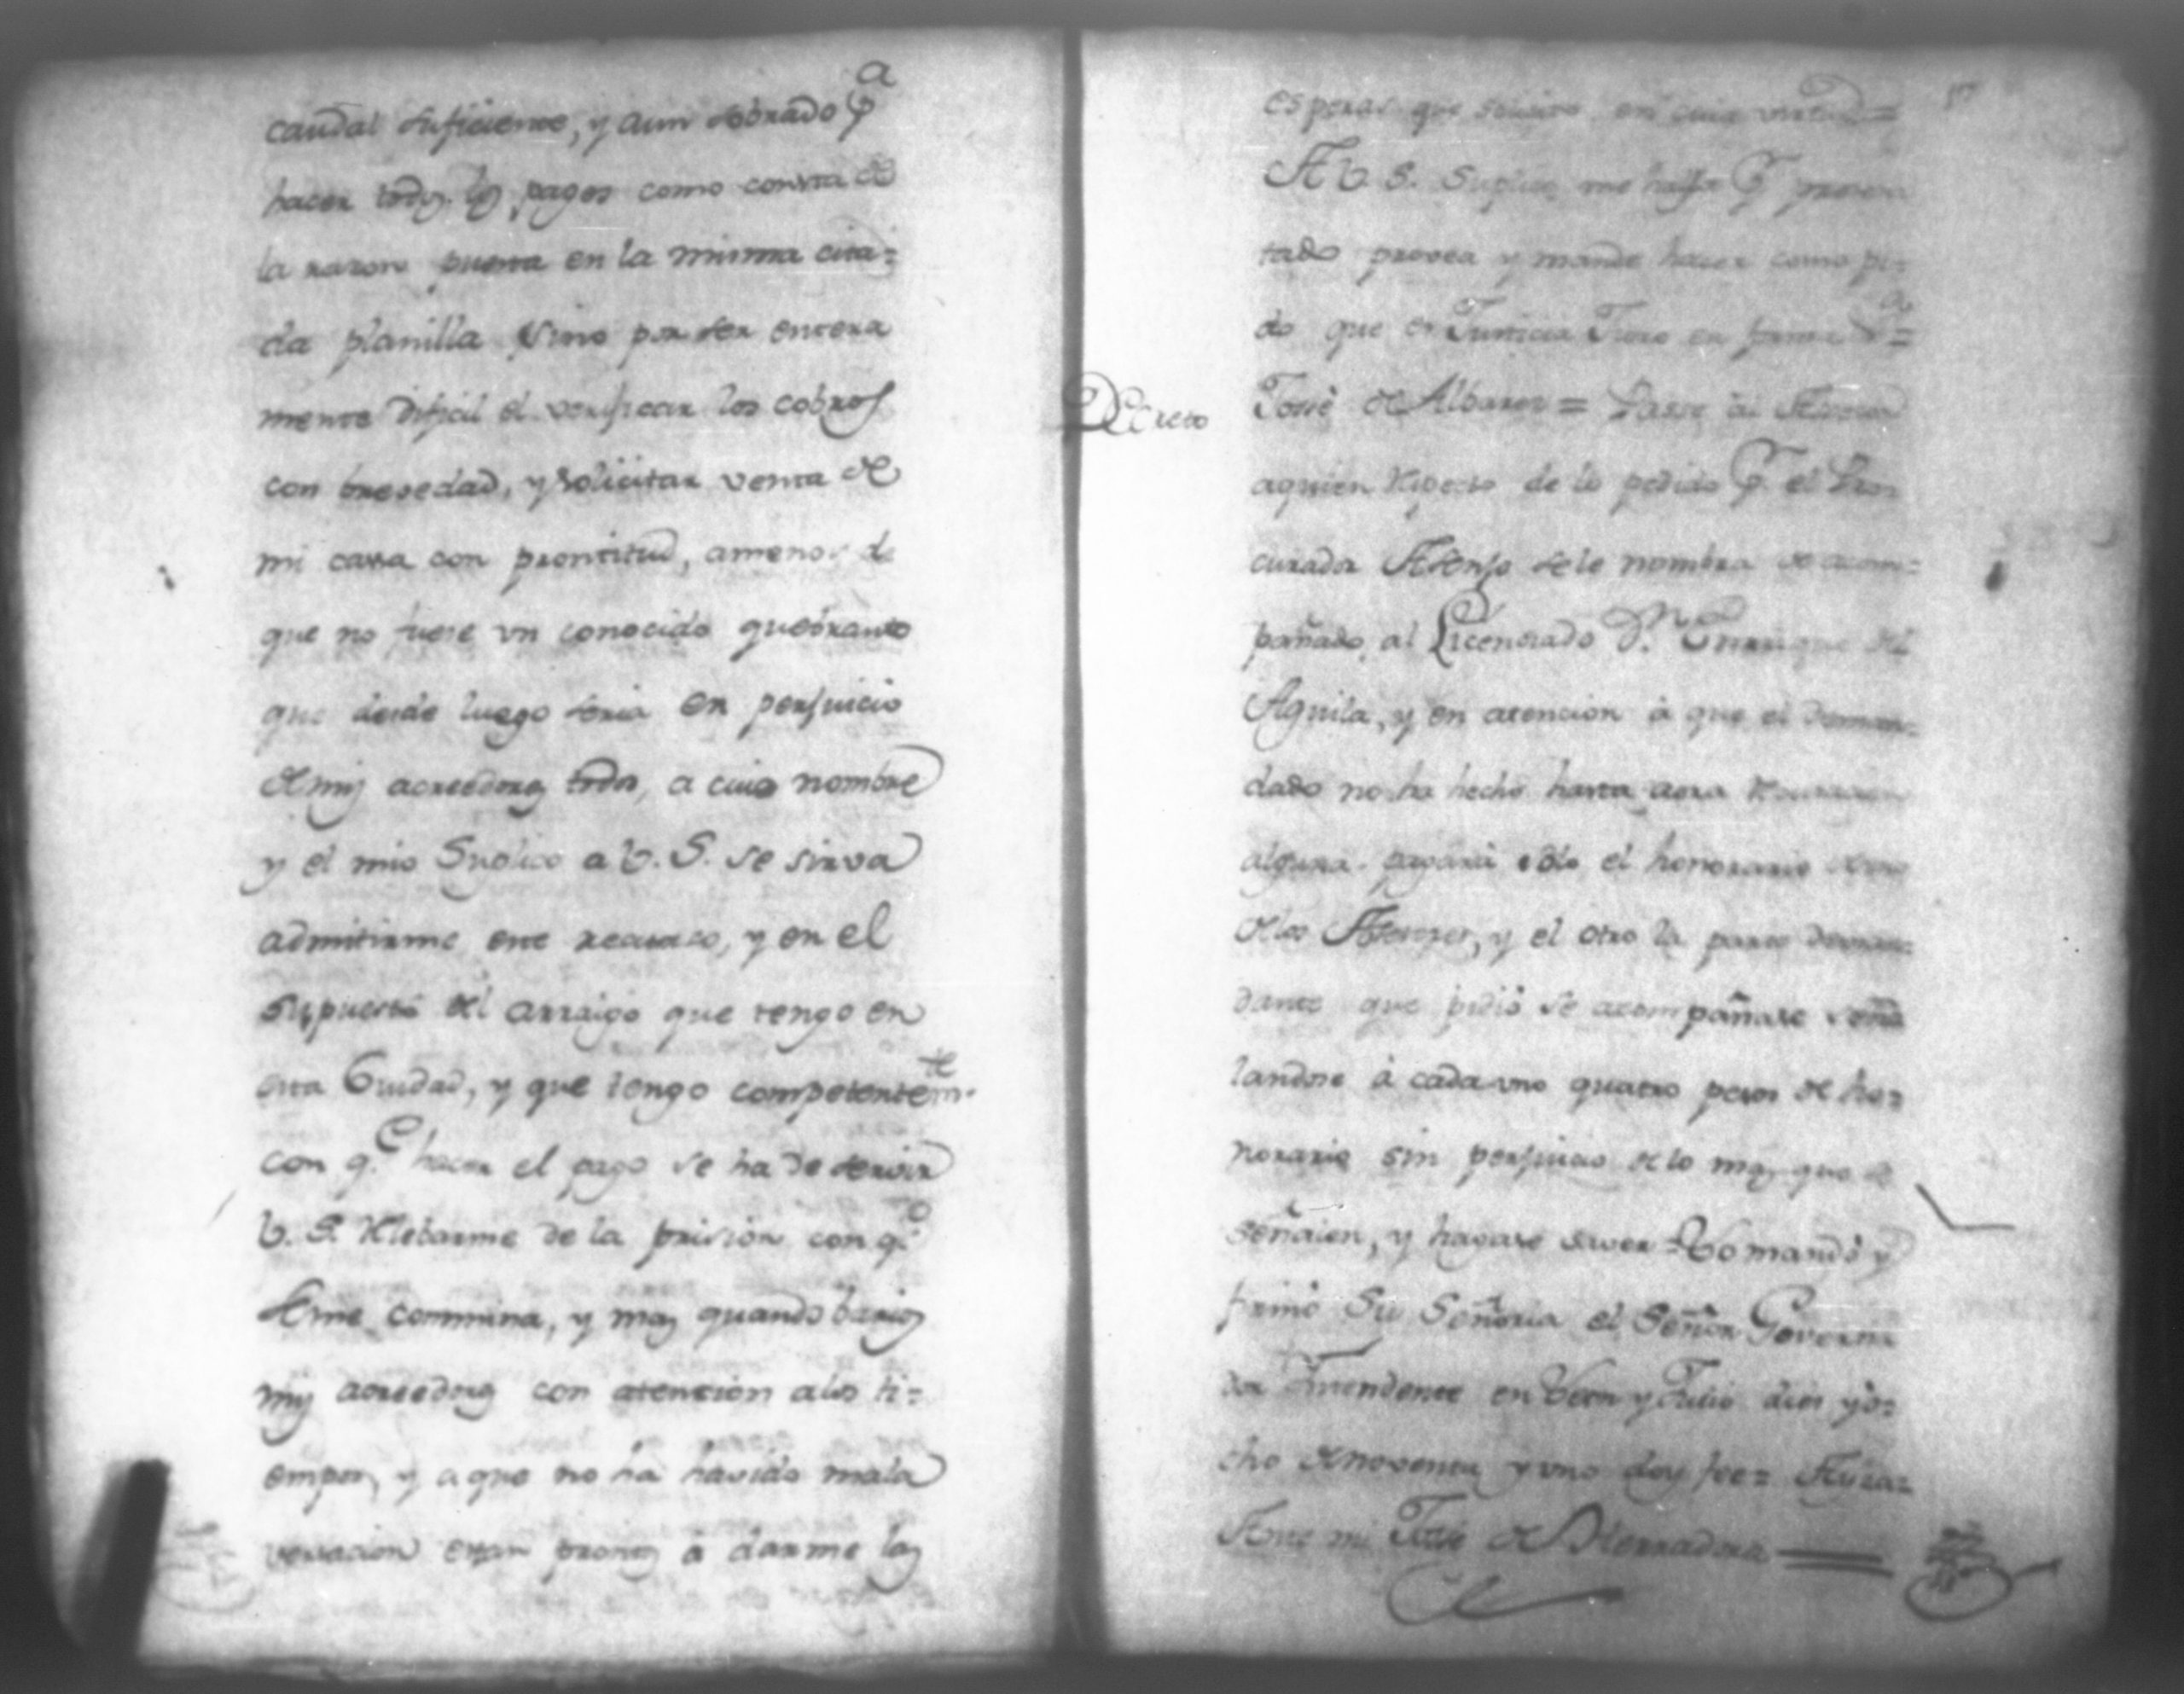 caudal suficiente, y aun sobrado pᵃ
hacer todos los pagos como consta de
la razon puesta en la misma cita=
da planilla sino por ser entera
mente dificil el verificar los cobros
con brevedad, y solicitar venta de
mi cassa con prontitud, amenos de
que no fuese vn conocido quebranto
que desde luego seria en perjuicio
de mis acreedores todos, a cuio nombre
y el mio Suplico a V. S. se sirva
admitirme este recurso, y en el
supuesto del arraigo que tengo en
esta Ciudad, y que tengo competentemᵗᵉ
con q.ᵉ hacer el pago se ha de servir
V. S. Relebarme de la prision con q.ᵉ
seme commina, y mas quando barios
mis acreedores con atencion alos ti=
empos, y aque no ha havido mala
versacion estan prontos à darme las
esperas que solicito en cuia virtud=
A V. S. Suplico me haya pʳ presen
tado provea y mande hacer como pi=
do que es Justicia Juro en forma Vᵃ=
Decreto
Josè de Albares= Passe al Asesor
aquien respecto de lo pedido pʳ el Pro
curador Asenjo sele nombra de acom=
pañado al Licenciado Dⁿ Enrrique del
Aguila, y en atencion à que el deman=
dado no ha hecho hasta aora recusacion
alguna pagará solo el honorario de uno
delos Asesores, y el otro la parte deman=
dante que pidiò se acompañase seña
landose à cada vno quatro pesos de ho=
norario sin perjuicio de lo mas que se
señalen, y hagase saver= Lo mandò y
firmò Su Señoria el Señor Governa
dor Intendente en Veen y Julio dies y o=
cho de noventa y vno doy fee=
Ante mi Josè de Herradora